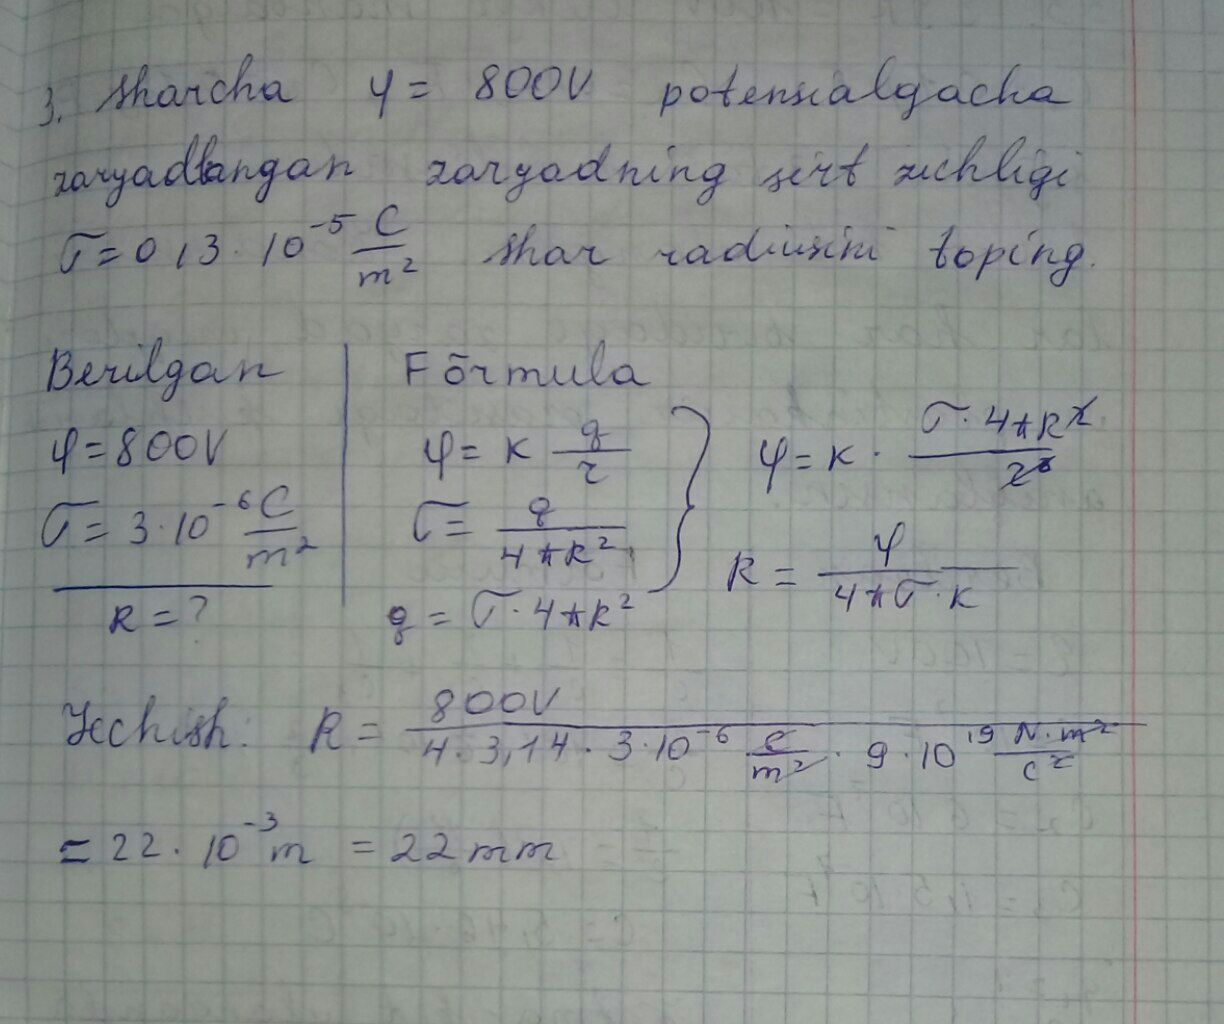 3. Sharcha φ = 800V potensialgacha
zaryadlangan zaryadning sirt zichligi
σ = 0,3 · 10⁻⁵ C/m² shar radiusini toping.
Berilgan
φ = 800V
σ = 3 · 10⁻⁶ C/m²
R = ?
Formula
φ = K q/r
σ = q/4πR²
q = σ · 4πR²
φ = K · σ · 4πR²/R
R = φ/4πσ · K
Yechish: R = 800V / 4 · 3,14 · 3 · 10⁻⁶ C/m² · 9 · 10¹⁹ N · m²/C²
= 22 · 10⁻³ m = 22 mm